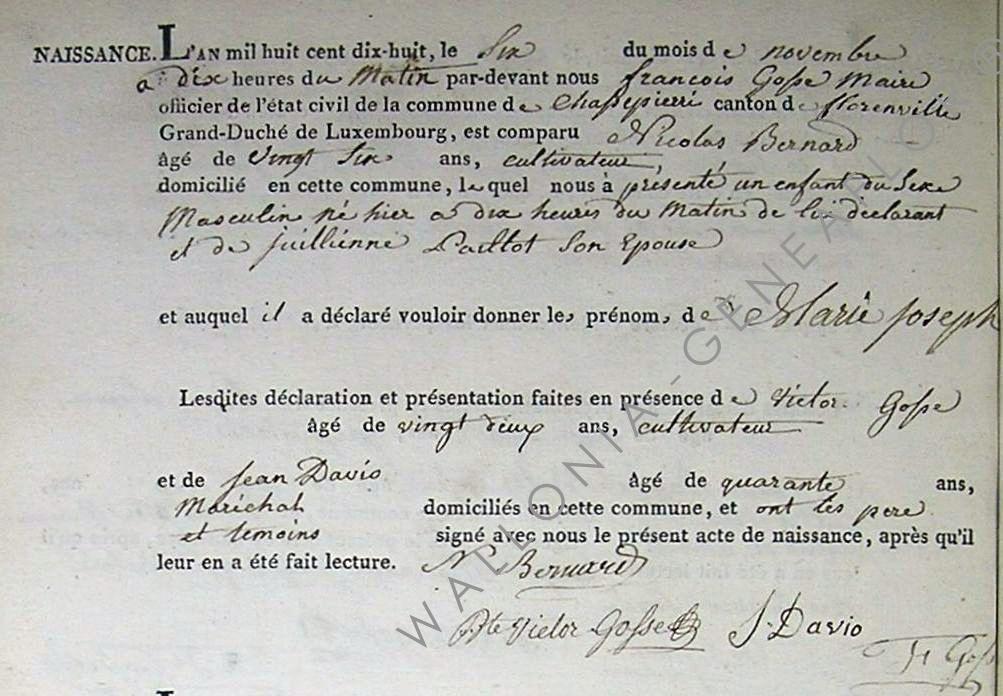 NAISSANCE. L'AN mil huit cent dix-huit, le Six du mois de novembre
a dix heures du Matin par-devant nous françois Gosse Maire
officier de l'état civil de la commune de Chassepierri canton de florenville
Grand-Duché de Luxembourg, est comparu Nicolas Bernard
âgé de vingt Six ans, cultivateur,
domicilié en cette commune, lequel nous à présenté un enfant du Sexe
Masculin né hier a dix heures du Matin de lui déclarant
et de juillienne Paillot Son Epouse
et auquel il a déclaré vouloir donner les prénoms de Marie joseph
Lesdites déclaration et présentation faites en présence de Victor Gosse
âgé de vingt deux ans, cultivateur
et de Jean Davio âgé de quarante ans,
Marichal domiciliés en cette commune, et ont les pere
et temoins signé avec nous le présent acte de naissance, après qu'il
leur en a été fait lecture. N Bernard
Bte Victor Gosse J. Davio
Fr Goss
WALLONIA - GENEALO